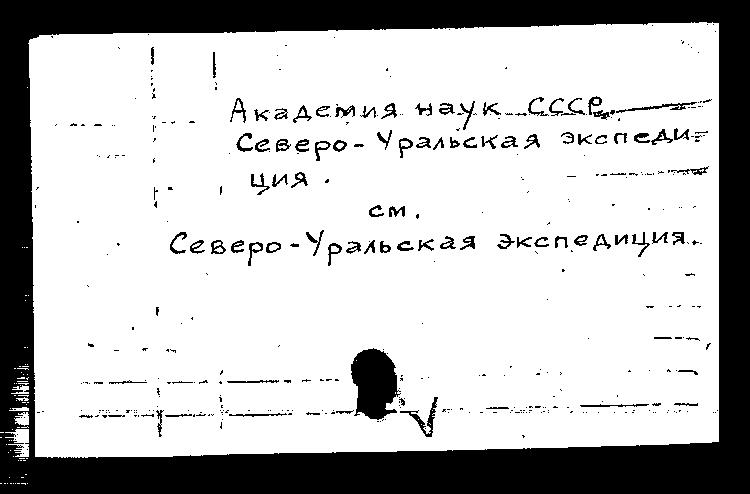 Академия наук СССР.
Северо-Уральская экспеди-
ция.
см.
Северо-Уральская экспедиция.